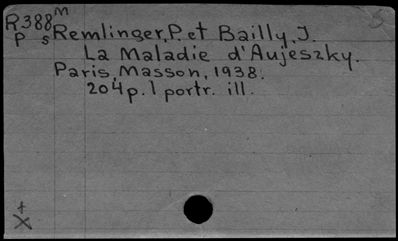 R388m Remlinger, P. et Bailly, J.
P s
La Maladie d'Aujeszky.
Paris, Masson, 1938.
204p. 1 portr. ill.